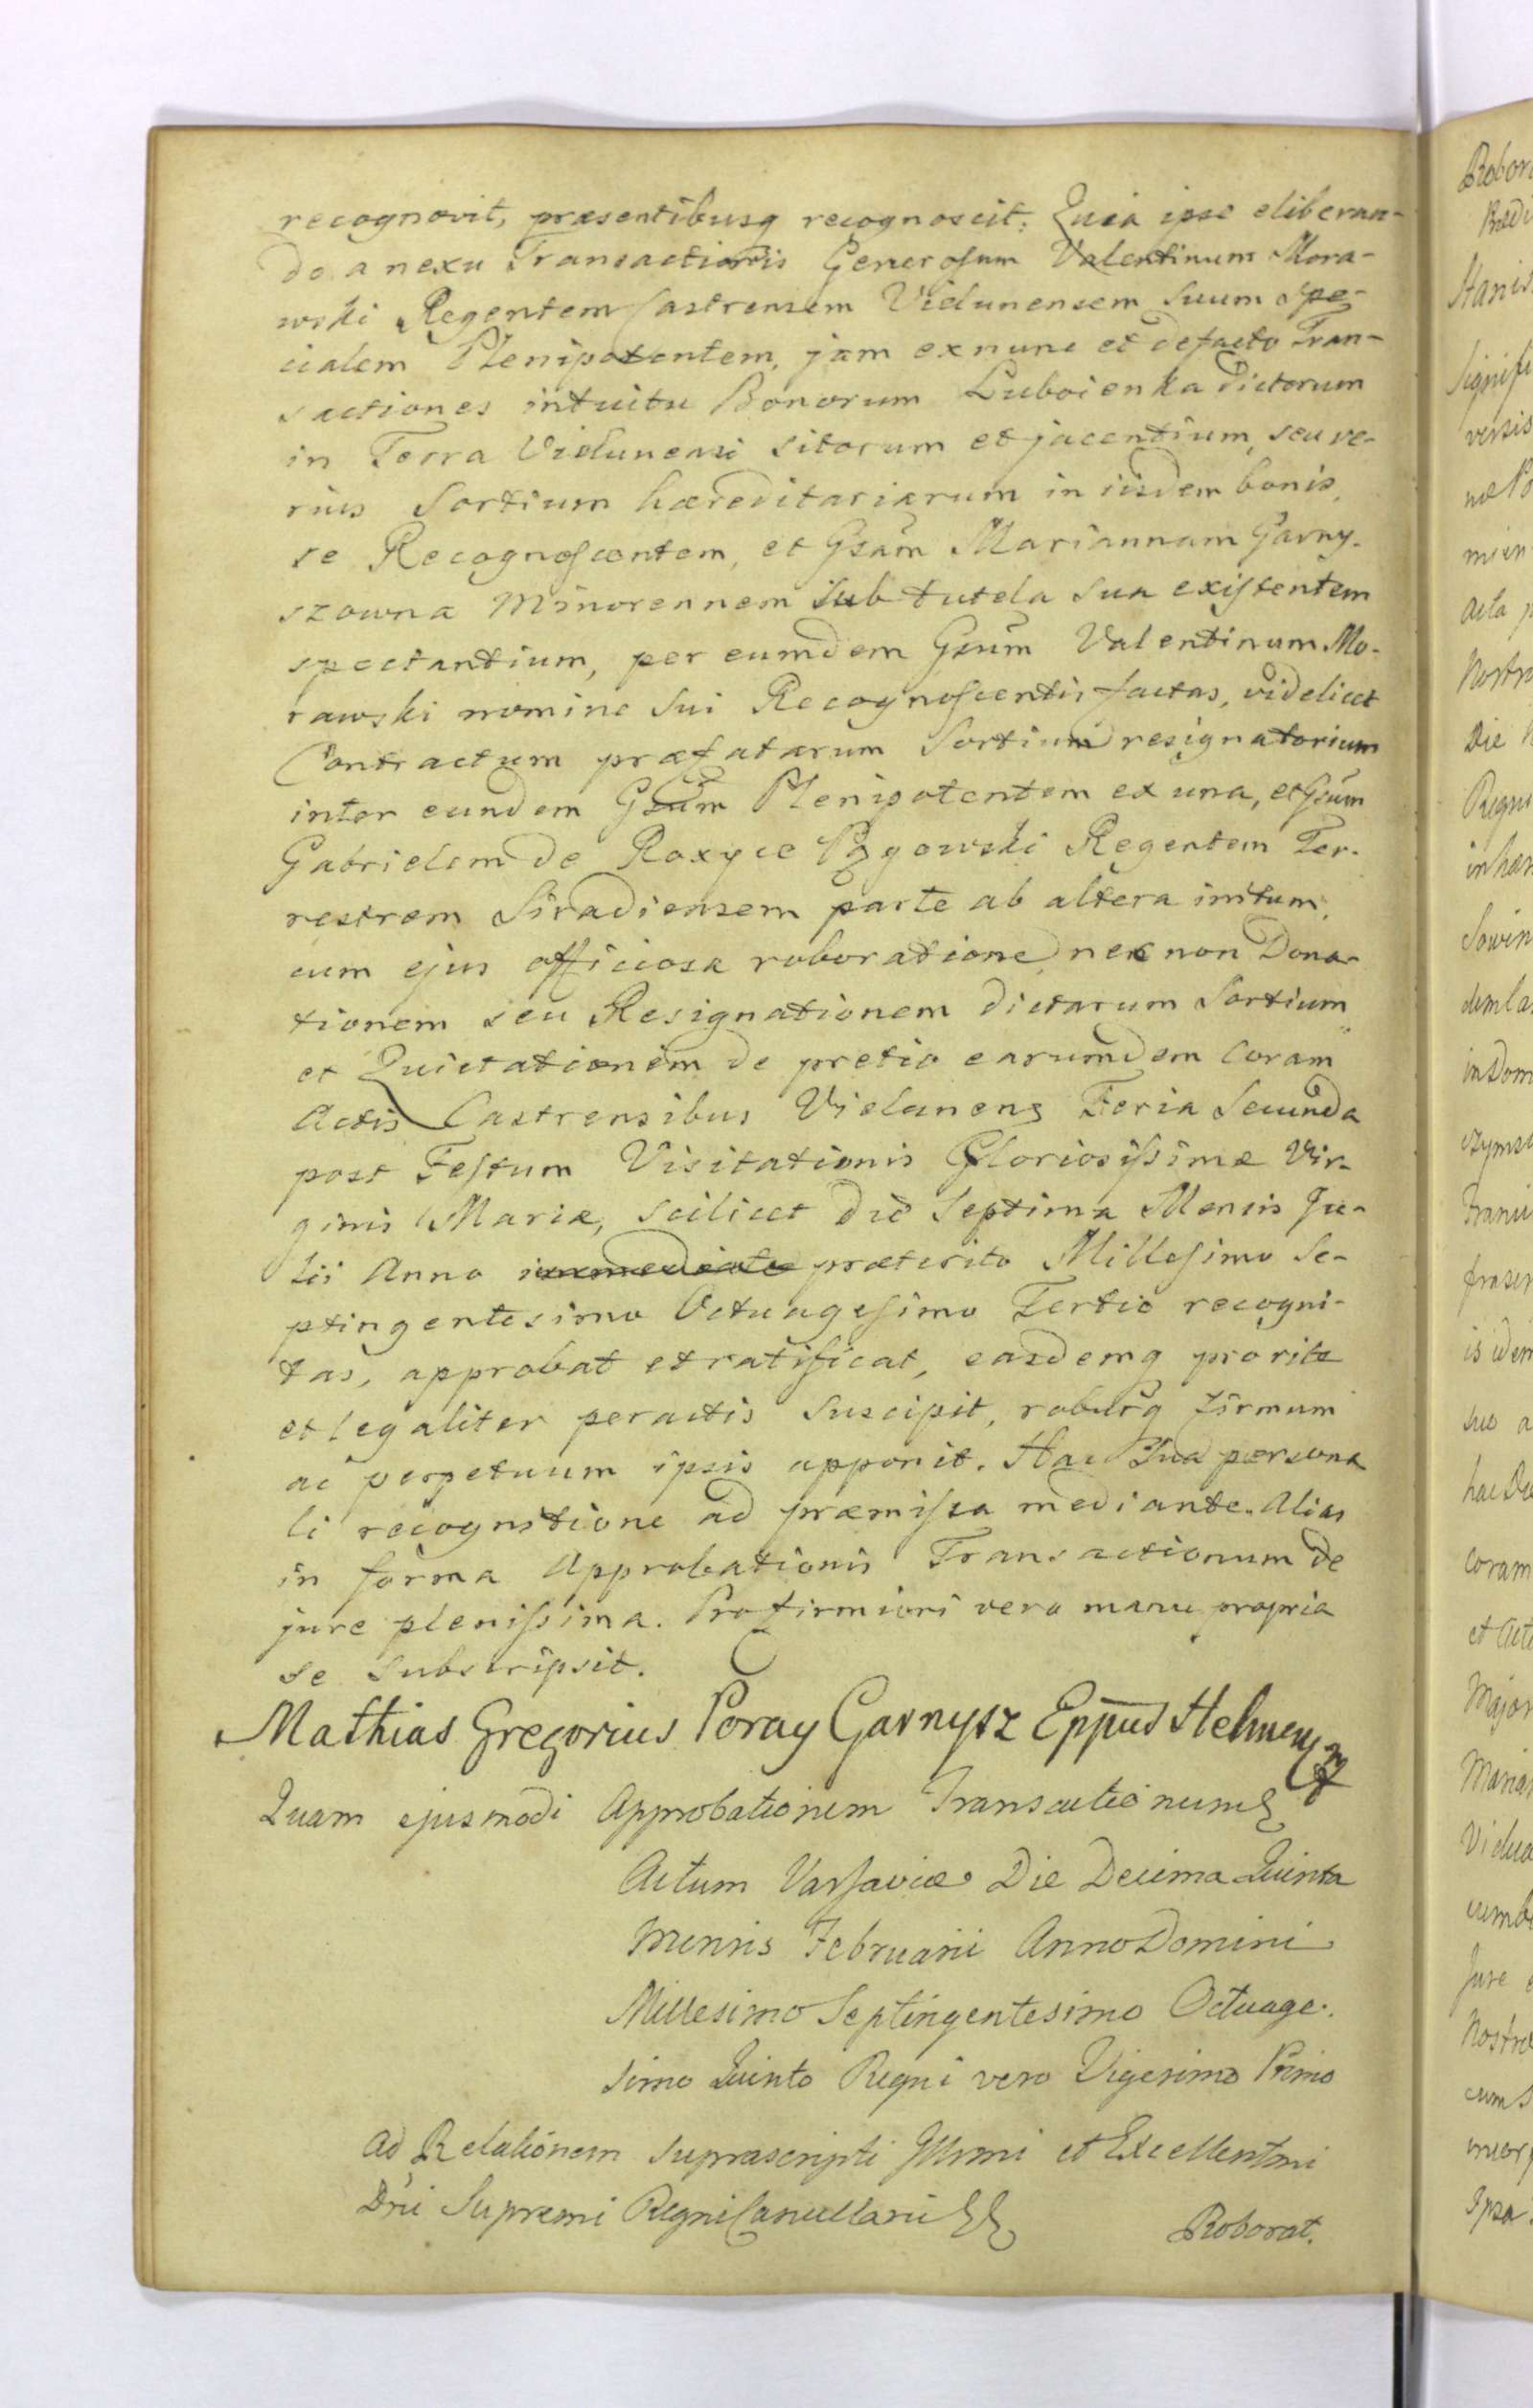 recognovit, præsentibusq recognoscit: Quia ipse eliberan-
do a nexu Transactionis Generosum Valentinum Mora-
wski Regentem Castrensem Vielunensem Suum Spe-
cialem Plenipotentem, jam exnunc et defacto Tran-
sactiones intuitu Bonorum Luboienka dictorum
in Terra Vielunensi sitorum et jacentium, seu ve-
rius Sortium hæreditariarum in iisdem bonis,
se Recognoscentem, et Gsam Mariannam Garny-
szowna Minorennem sub tutela sua existentem
spectantium, per eumdem Gsum Valentinum Mo-
rawski nomine sui Recognoscentis factas, videlicet
Contractum præfatarum Sortium resignatorium
inter eundem Gsum Plenipotentem ex una, et Gsum
Gabrielem de Roxyce Pągowski Regentem Ter-
restrem Siradiensem parte ab altera initum,
cum ejus officiosa roboratione, nec non Dona-
tionem seu Resignationem dictarum Sortium
et Quietationem de pretio earumdem Coram
Actis Castrensibus Vielunens Feria Secunda
post Festum Visitationis Gloriosissimæ Vir-
ginis Mariæ, scilicet die Septima Mensis Ju-
lii Anno immediate præterito Millesimo Se-
ptingentesimo Octuagesimo Tertio recogni-
tas, approbat et ratificat, easdemq pro rite
et legaliter peractis suscipit, roburq firmum
ac perpetuum ipsis apponit. Hac Sua persona
li recognitione ad præmissa mediante. Alias
in forma Approbationis Transactionum de
jure plenissima. Pro firmiori vero manu propria
se subscripsit.
Mathias Gregorius Poray Garnysz Eppus Helmen
Quam ejusmodi Approbationem Transactionum
Actum Varsaviæ Die Decima Quinta
Mensis Februarii Anno Domini
Millesimo Septingentesimo Octuage-
simo Quinto Regni vero Vigesimo Primo
Ad Relationem suprascripti Illrmi et Excellentmi
Dni Supremi Regni Cancellarii
Roborat.